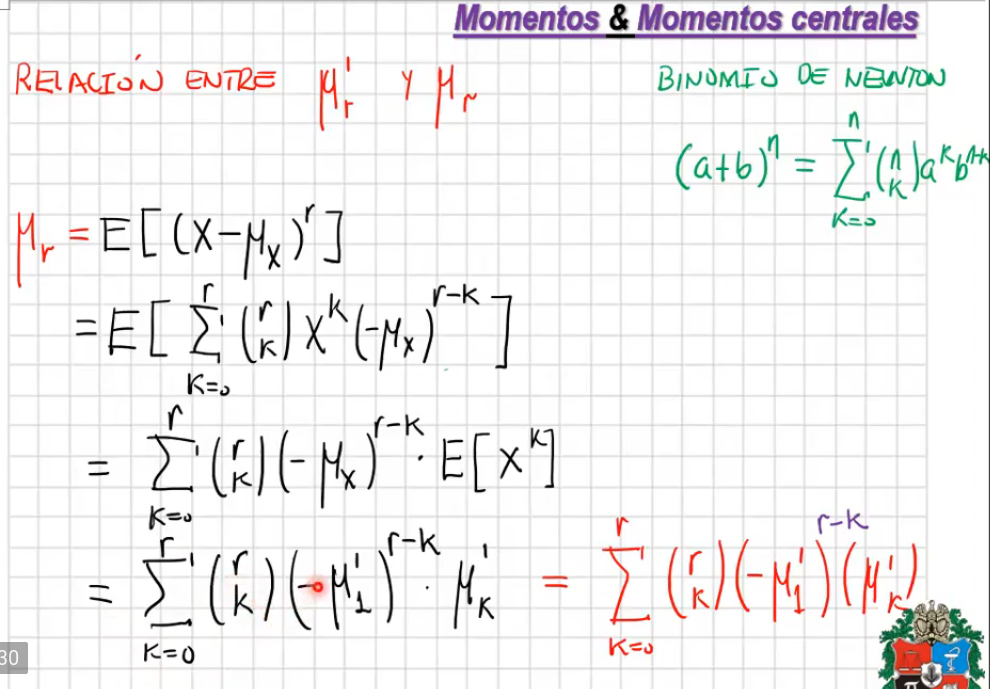 Momentos & Momentos centrales
RELACIÓN ENTRE μ'_r Y μ_r
BINOMIO DE NEWTON
(a+b)^n = Σ_{K=0}^{n} (n K) a^K b^{n-K}
μ_r = E[(X-μ_X)^r]
= E[Σ_{K=0}^{r} (r K) X^K (-μ_X)^{r-K}]
= Σ_{K=0}^{r} (r K) (-μ_X)^{r-K} · E[X^K]
= Σ_{K=0}^{r} (r K) (-μ'_1)^{r-K} · μ'_K = Σ_{K=0}^{r} (r K) (-μ'_1)^{r-K} (μ'_K)
30